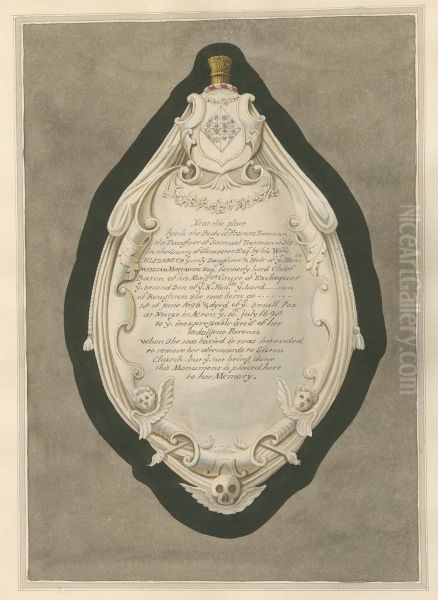 Near this place
lyeth the Body of Fraxes Trotman
the Daughter of Samuel Trotman of
in the County of Gloucester Esq. by his Wife
ELIZABETH y. only Daughter & Heir of y. Hon.
WILLIAM MONTAGUE Esq. formerly Lord Chief
Baron of his Maj.tys Court of Exchequer
y. second Son of y. R. Hon.ble y. Lord ......ton
of Boughton She was born at ........
18 of June 1696 & dyed of y. Small Pox
at Nurse in Acton y. 10. July 1698
to y. inexpressable Grief of her
Indulgent Parents
When She was buried it was intended
to remove her afterwards to Siston
Church. but y. not being done
this Monument is placed here
to her Memory.